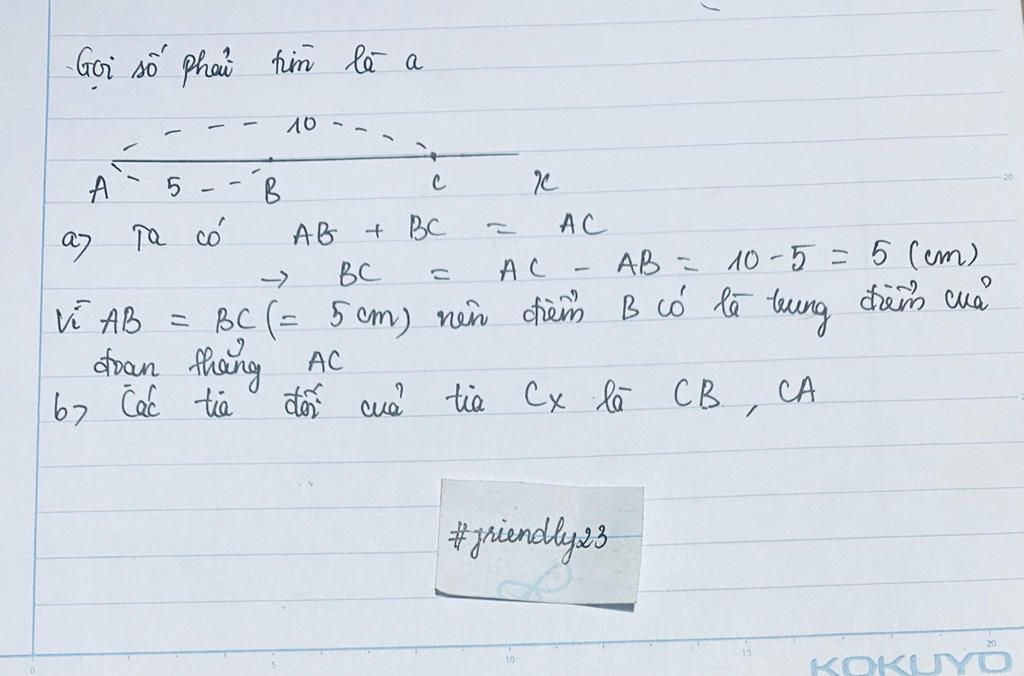 Gọi số phải tìm là a
10
A 5 B C x
a) Ta có AB + BC = AC
→ BC = AC - AB = 10 - 5 = 5 (cm)
Vì AB = BC (= 5 cm) nên điểm B có là trung điểm của
đoạn thẳng AC
b) Các tia đối của tia Cx là CB, CA
#friendly23
0 5 10 15 20
KOKUYO